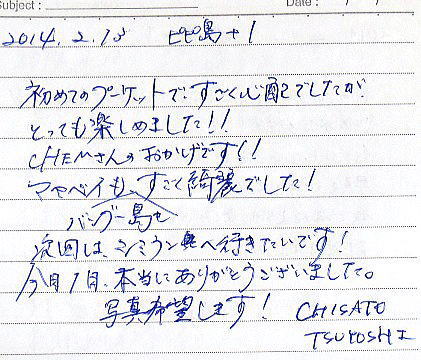 Subject : Date : / /
2014. 2. 13 ピピ島+1
初めてのプーケットで、すごく心配でしたが
とっても楽しめました!!
CHEMさんのおかげです!!
マヤベイも、すごく綺麗でした!
バンブー島も
次回は、シミランへ行きたいです!
今日1日、本当にありがとうございました。
写真希望します! CHISATO
TSUYOSHI